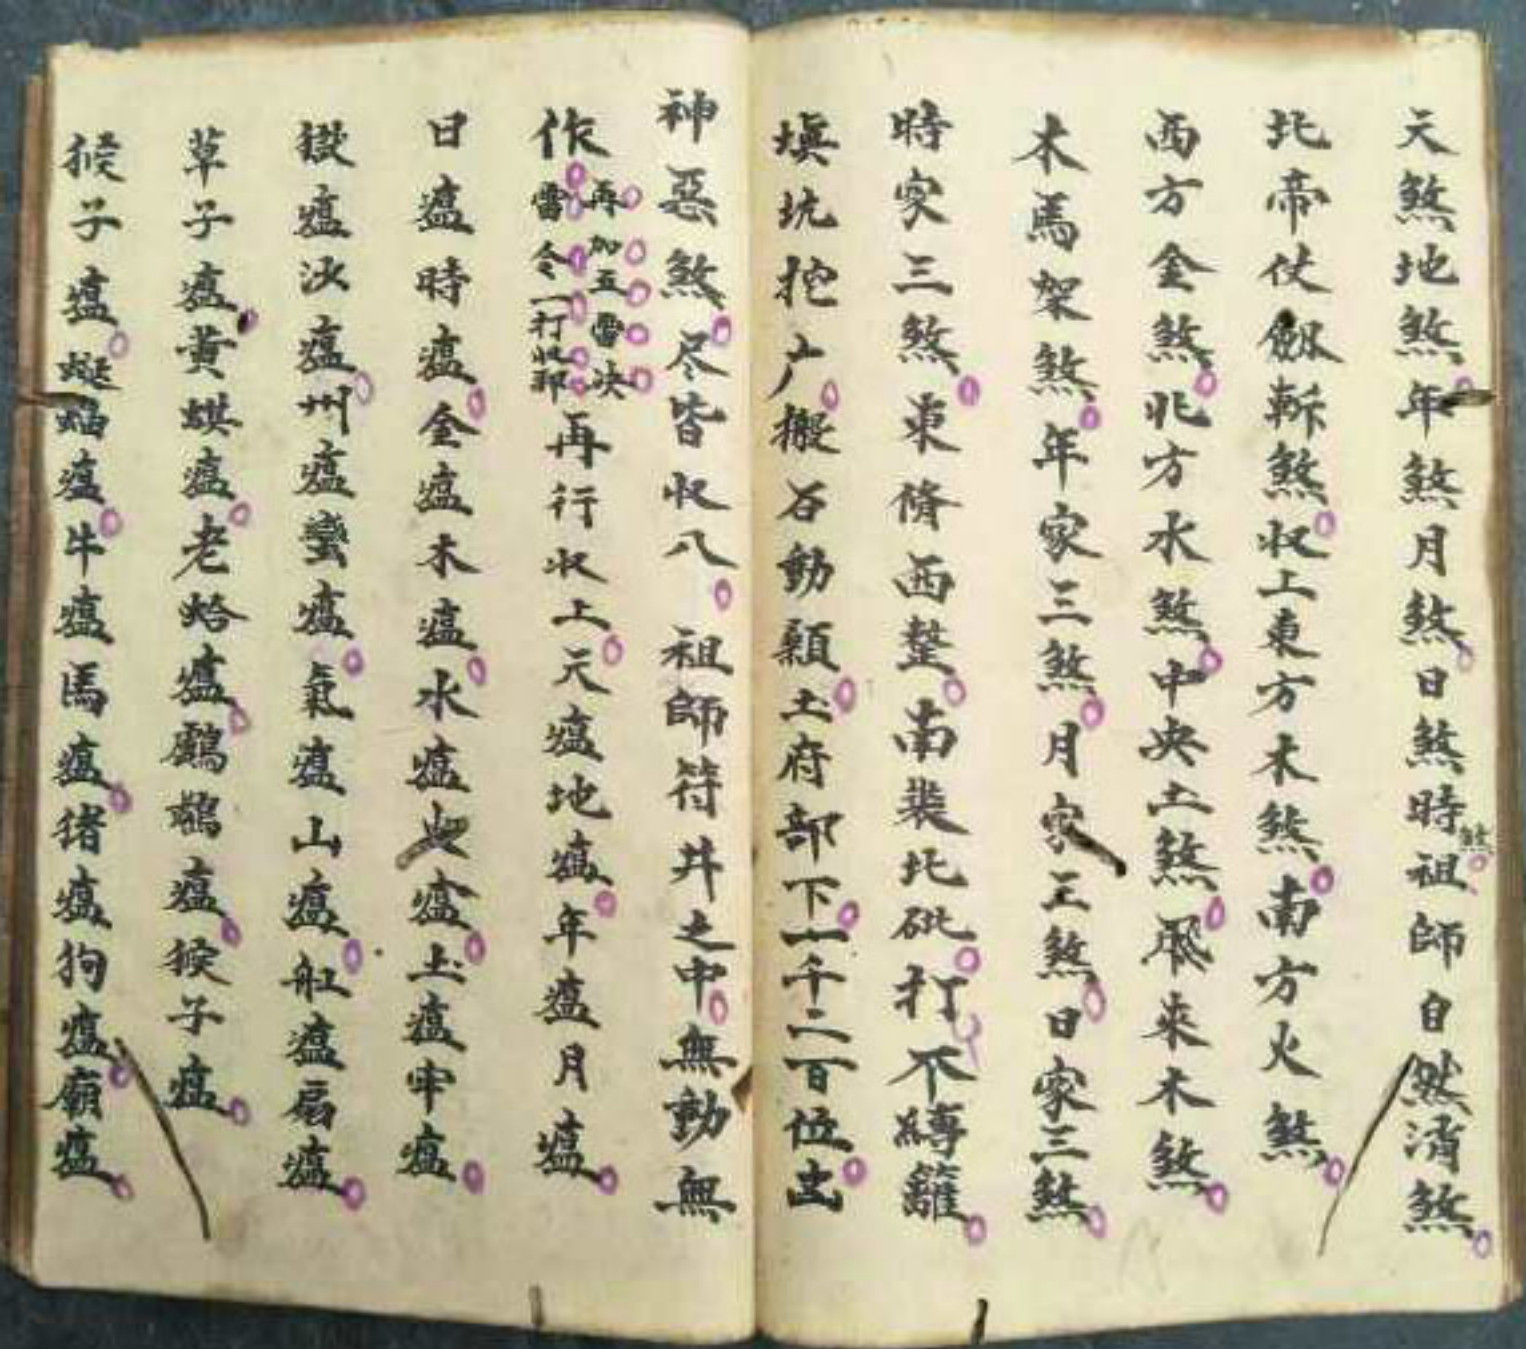 天煞地煞年煞月煞日煞時煞祖師自然消煞
北帝仗劔斬煞収上東方木煞南方火煞
西方金煞北方水煞中央土煞飛來木煞
木馬架煞年家三煞月家三煞日家三煞
時家三煞東脩西整南裝北砒打不縛籬
塡坑挖广搬石動顆土府部下一千二百位土
神惡煞尽皆収入祖師符井之中無動無
作再加五雷决雷令一打収邪再行収上天瘟地瘟年瘟月瘟
日瘟時瘟金瘟木瘟水瘟火瘟土瘟牢瘟
嶽瘟汝瘟州瘟蠻瘟氣瘟山瘟舡瘟扇瘟
草子瘟黃蜞瘟老蛤瘟鸕鶿瘟猴子瘟
猴子瘟蜒蝠瘟牛瘟馬瘟猪瘟狗瘟廟瘟